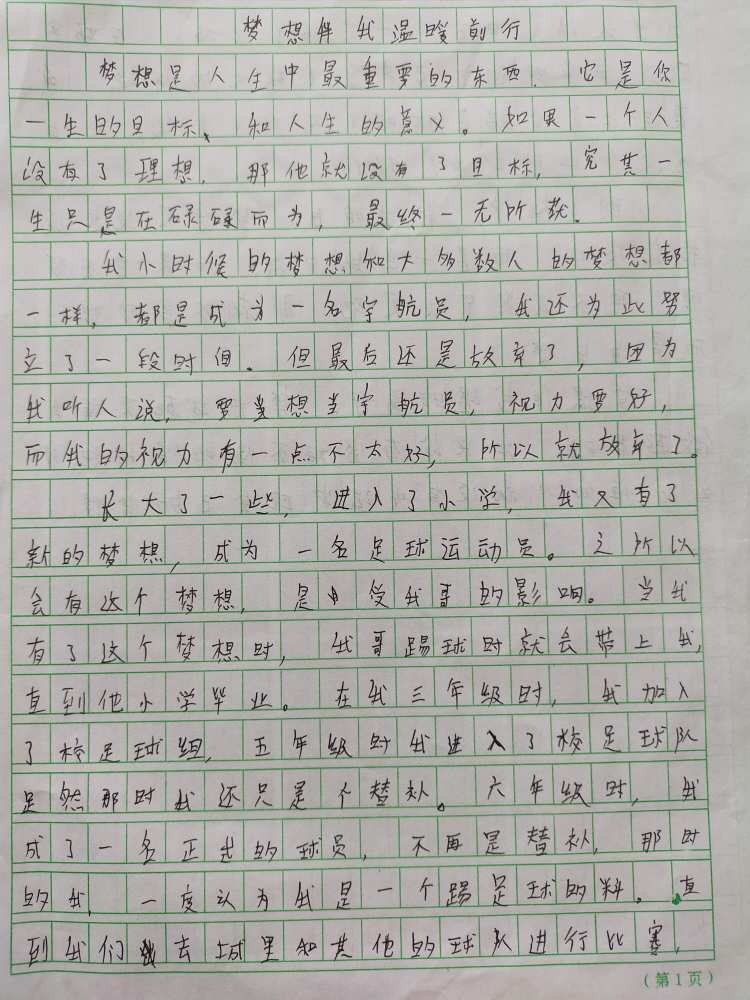 梦想伴我温暖前行
梦想是人生中最重要的东西. 它是你
一生的目标、和人生的意义。如果一个人
没有了理想, 那他就没有了目标, 究其一
生只是在碌碌而为, 最终一无所获.
我小时候的梦想和大多数人的梦想都
一样, 都是成为一名宇航员, 我还为此努
立了一段时间. 但最后还是放弃了, 因为
我听人说, 要想当宇航员, 视力要好,
而我的视力有一点不太好, 所以就放弃了。
长大了一些, 进入了小学, 我又有了
新的梦想, 成为一名足球运动员。之所以
会有这个梦想, 是受我哥的影响。当我
有了这个梦想时, 我哥踢球时就会带上我,
直到他小学毕业。在我三年级时, 我加入
了校足球组, 五年级时我进入了校足球队
是然那时我还只是个替补。六年级时, 我
成了一名正式的球员, 不再是替补, 那时
的我, 一度认为我是一个踢足球的料。直
到我们去城里和其他的球队进行比赛,
(第1页)